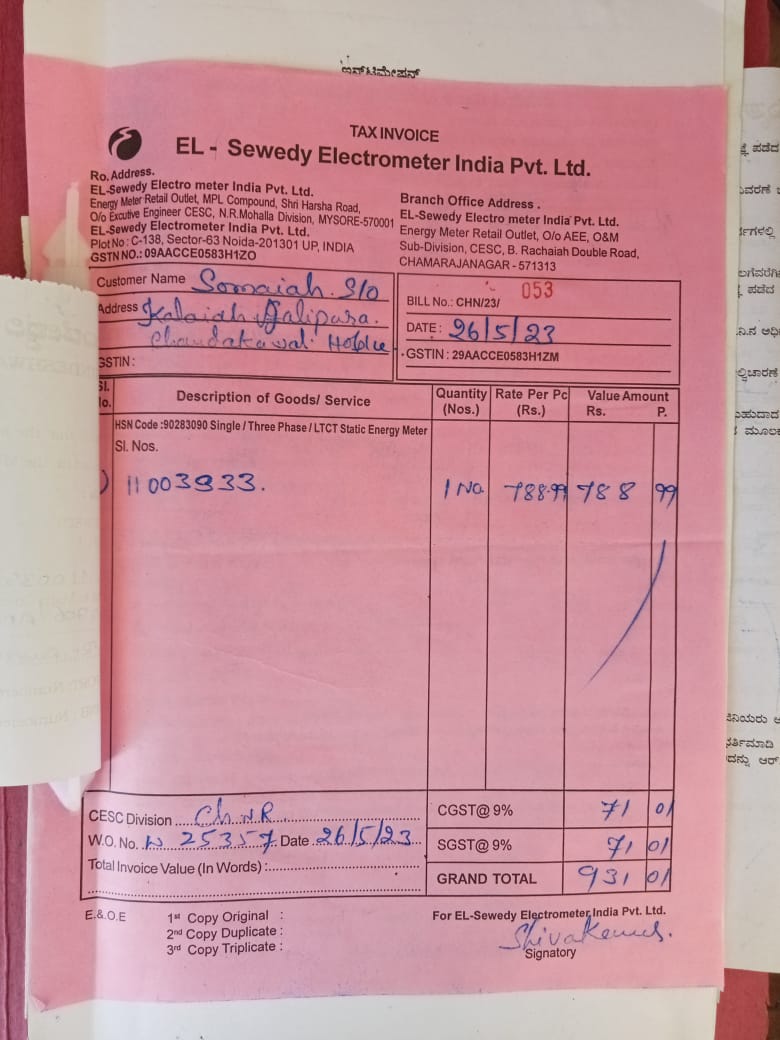 ಇನ್‌ಟಿಮೇಷನ್
TAX INVOICE
EL - Sewedy Electrometer India Pvt. Ltd.
Ro. Address.
EL-Sewedy Electro meter India Pvt. Ltd.
Energy Meter Retail Outlet, MPL Compound, Shri Harsha Road,
O/o Excutive Engineer CESC, N.R.Mohalla Division, MYSORE-570001
EL-Sewedy Electrometer India Pvt. Ltd.
Plot No : C-138, Sector-63 Noida-201301 UP, INDIA
GSTN NO.: 09AACCE0583H1ZO
Branch Office Address .
EL-Sewedy Electro meter India Pvt. Ltd.
Energy Meter Retail Outlet, O/o AEE, O&M
Sub-Division, CESC, B. Rachaiah Double Road,
CHAMARAJANAGAR - 571313
Customer Name Somaiah. S/o
Address Kalaiah
GSTIN :
BILL No.: CHN/23/ 053
DATE : 26/5/23
GSTIN : 29AACCE0583H1ZM
Sl. No. Description of Goods/ Service Quantity (Nos.) Rate Per Pc (Rs.) Value Amount Rs. P.
HSN Code :90283090 Single / Three Phase / LTCT Static Energy Meter
Sl. Nos.
) 11003933. 1 No 788.99 788 99
CESC Division Ch N R
CGST@ 9% 71 01
W.O. No. N 25357 Date 26/5/23
SGST@ 9% 71 01
Total Invoice Value (In Words) :
GRAND TOTAL 931 01
E.&.O.E
1st Copy Original :
2nd Copy Duplicate :
3rd Copy Triplicate :
For EL-Sewedy Electrometer India Pvt. Ltd.
Signatory